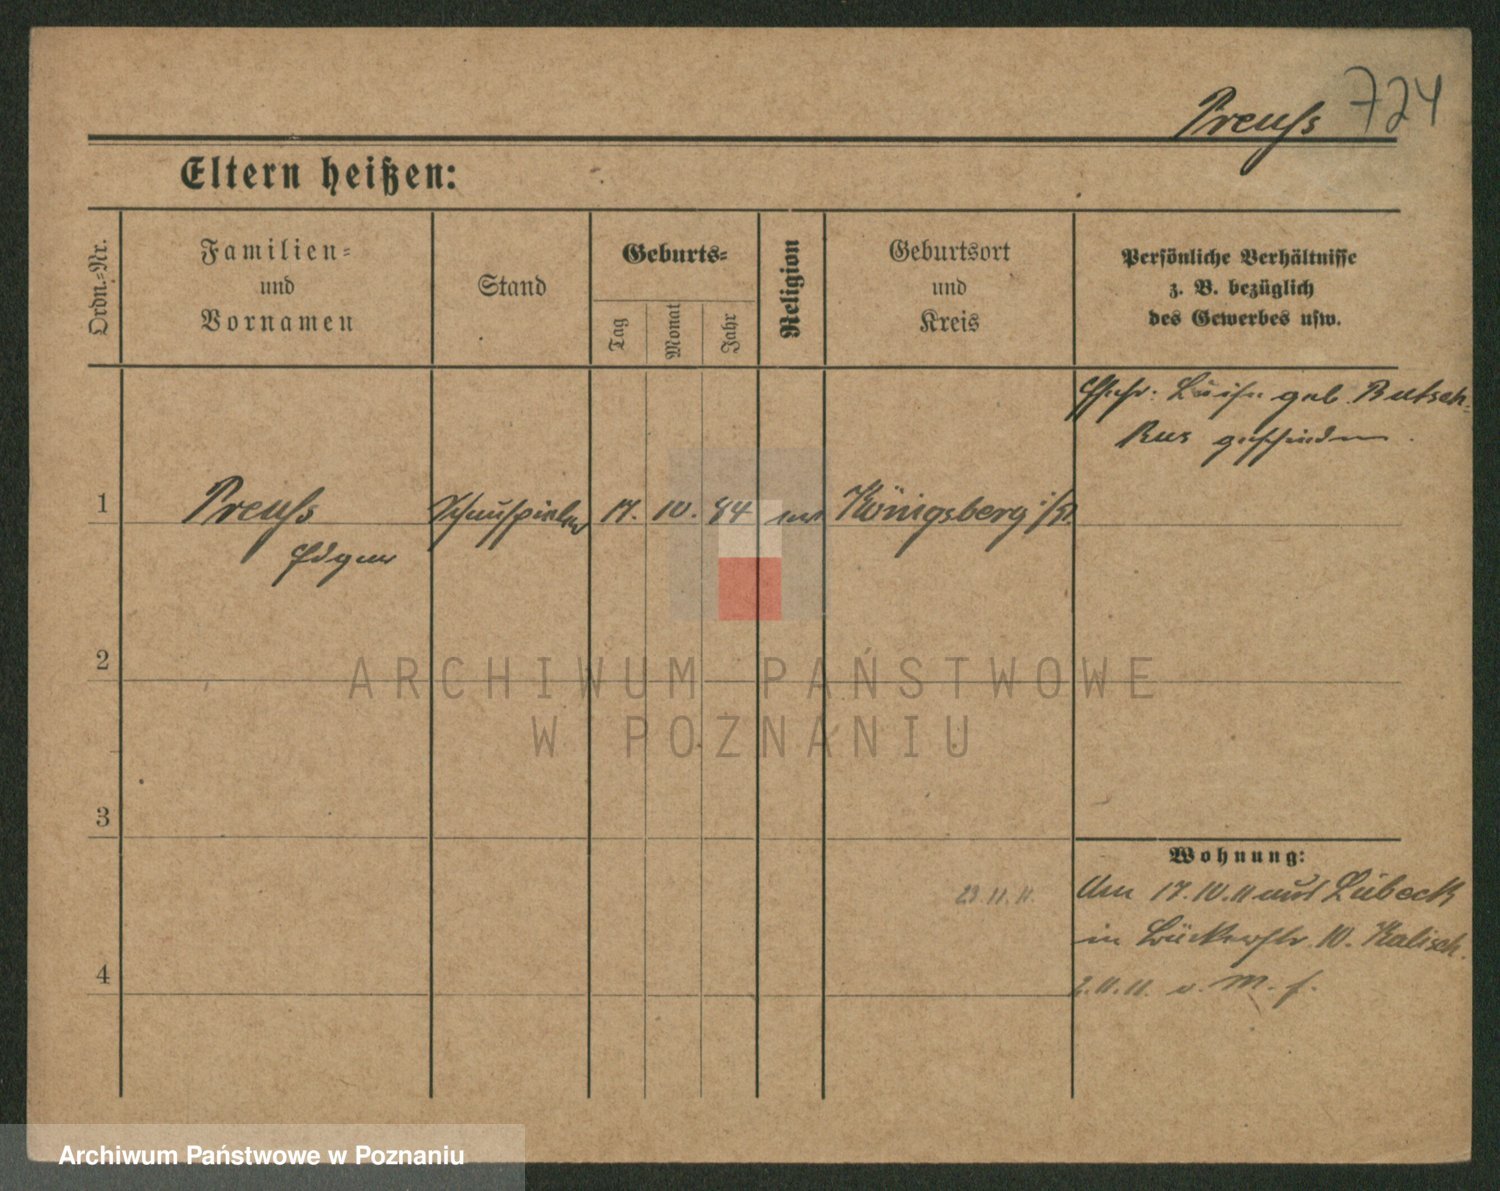 Preuß 724
Eltern heißen:
Ordn.-Nr.
Familien-
und
Vornamen
Stand
Geburts-
Tag
Monat
Jahr
Religion
Geburtsort
und
Kreis
Persönliche Verhältnisse
z. B. bezüglich
des Gewerbes usw.
Ehefr: Luise geb.
geschieden
1 Preuß Schauspieler 17. 10. 84 Königsberg i/P
Edgar
ARCHIWUM PAŃSTWOWE
W POZNANIU
2
3
Wohnung:
23.11.11. Am 17.10.11 aus Lübeck
in 10. Kalisch.
4
2.11.11. v. M. f.
Archiwum Państwowe w Poznaniu